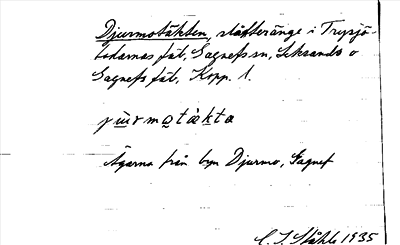 Djurmotäkten, slåtteränge i Trysjö-
bodarnas fäb, Gagnefs sn, Leksands o
Gagnefs fäb, Kopp. l.
jùrmo̠tàkta
Ägarna från byn Djurmo, Gagnef
C. I. Ståhle 1935